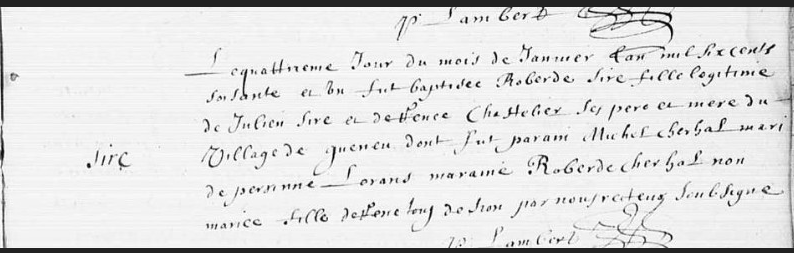 P. Lambert
Le quattrieme Jour du mois de Januier Lan mil six cents
soisante et un fut baptisee Roberde Sire fille legitime
de Julien Sire et de Chastelier ses pere et mere du
Sire
Village de queneu dont fut parain Michel Cherhal mari
de perrinne Lorans maraine Roberde Cherhal non
mariee fille de Sion par nous recteur soubsigne
P. Lambert